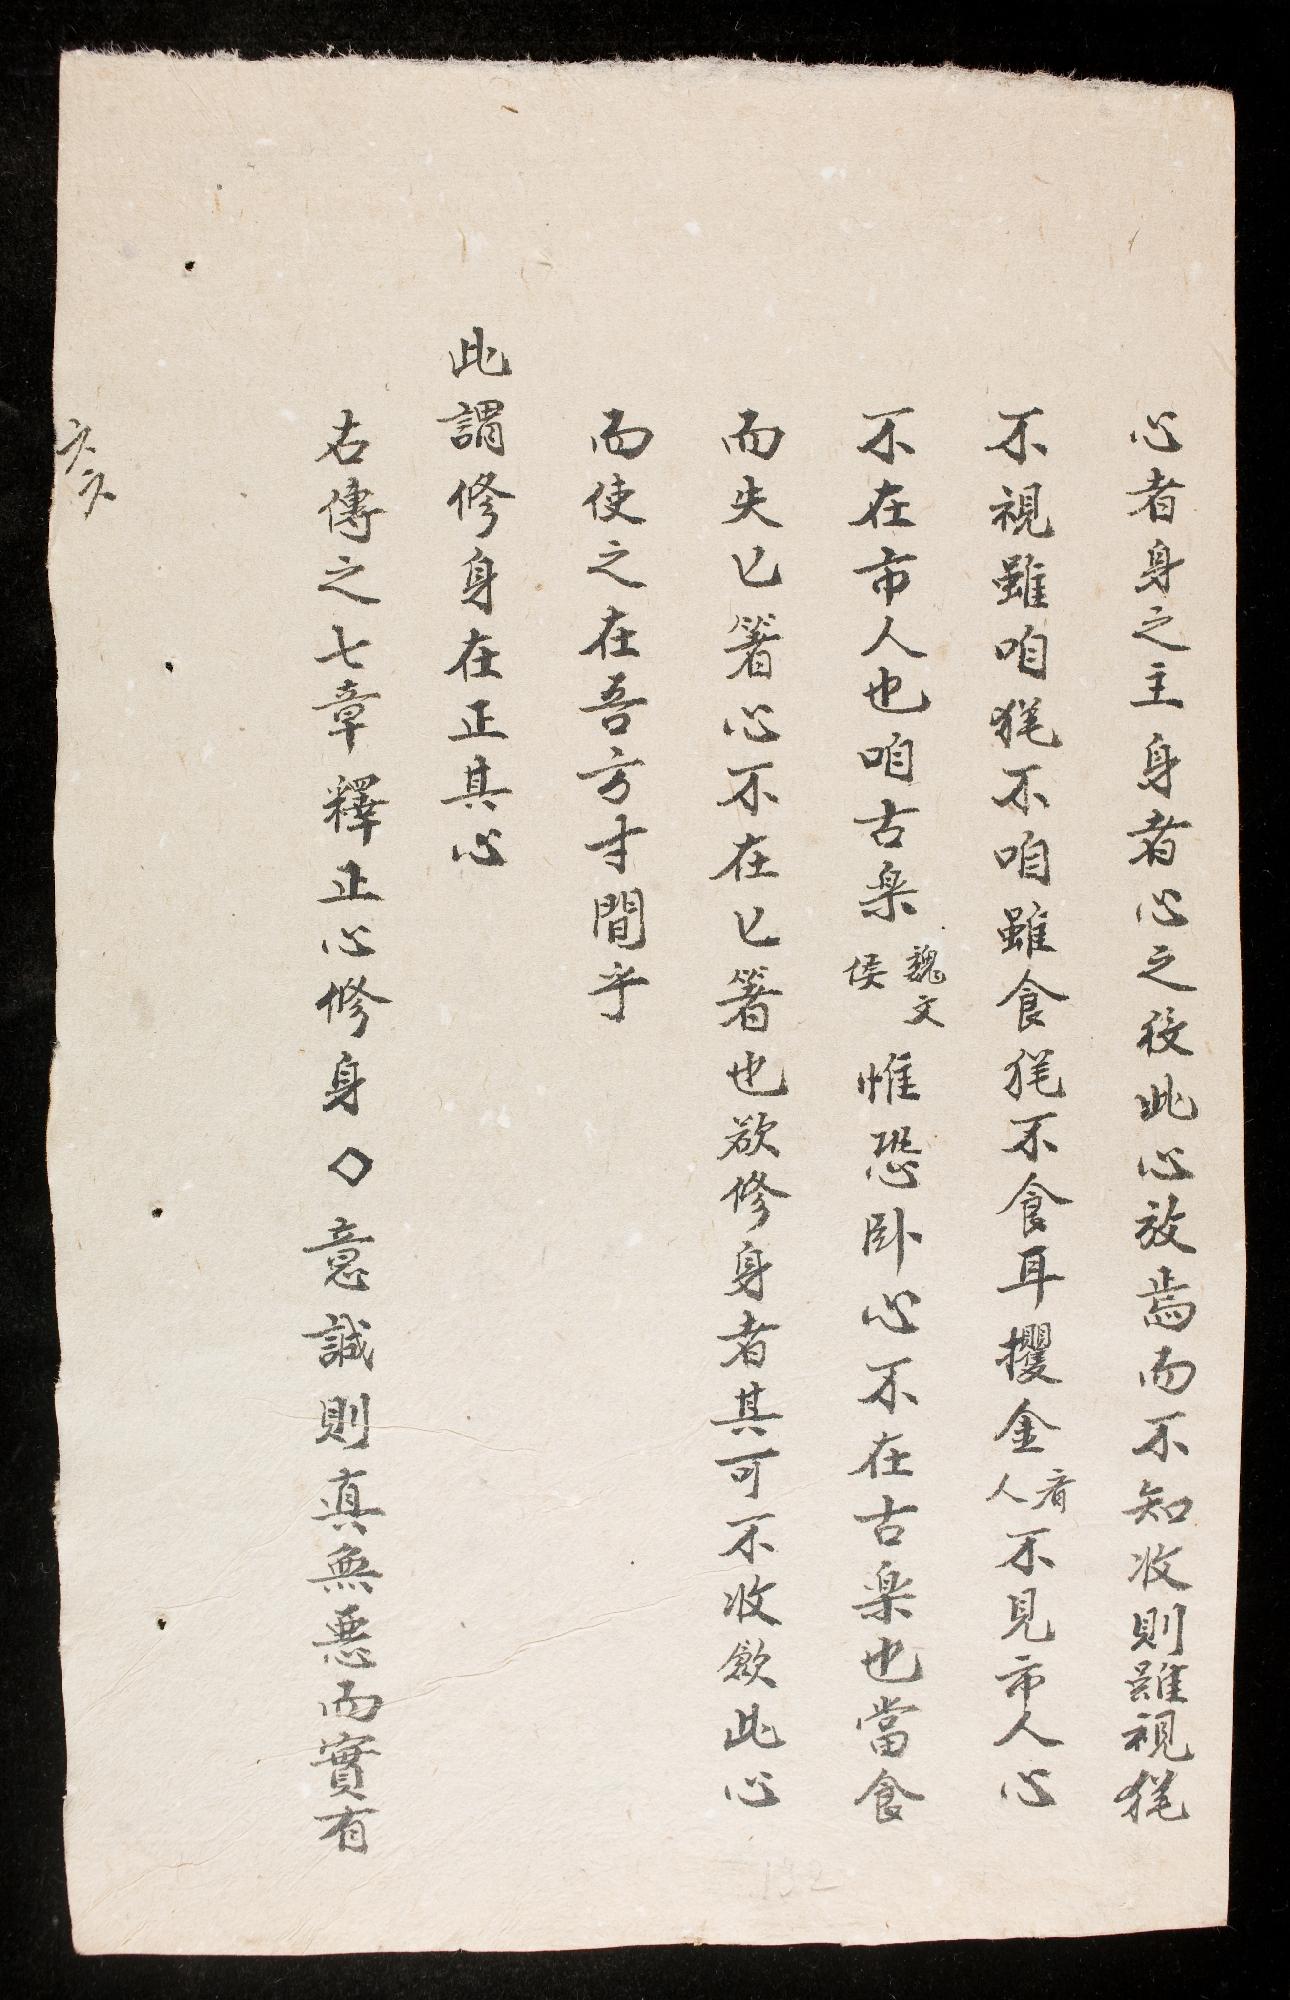 心者身之主身者心之役此心放焉而不知收則雖視猶
不視雖咱猶不咱雖食猶不食耳攫金者人不見市人心
不在市人也咱古楽魏文侯惟恐卧心不在古楽也當食
而失匕箸心不在匕箸也欲修身者其可不收斂此心
而使之在吾方寸間乎
此謂修身在正其心
右傳之七章釋正心修身〇意誠則真無悪而實有